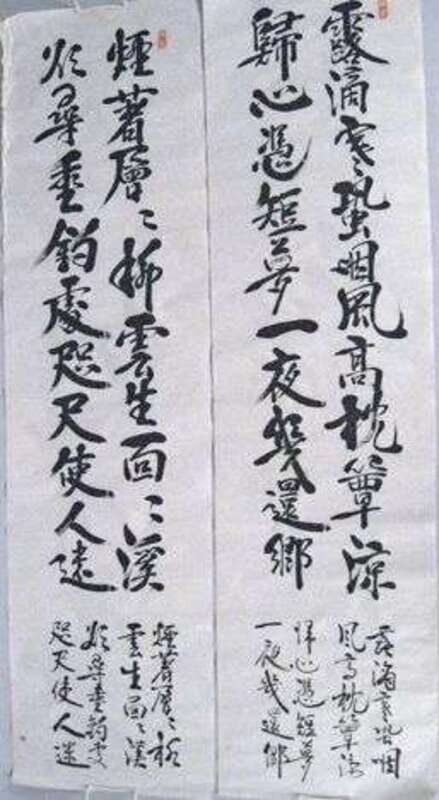 露滴寒蛩咽風高枕簟涼
歸心憑短夢一夜幾還鄉
露滴寒蛩咽
風高枕簟涼
歸心憑短夢
一夜幾還鄉
煙著層〻柳雲生面〻溪
欲尋垂釣處咫尺使人迷
煙著層〻柳
雲生面〻溪
欲尋垂釣處
咫尺使人迷